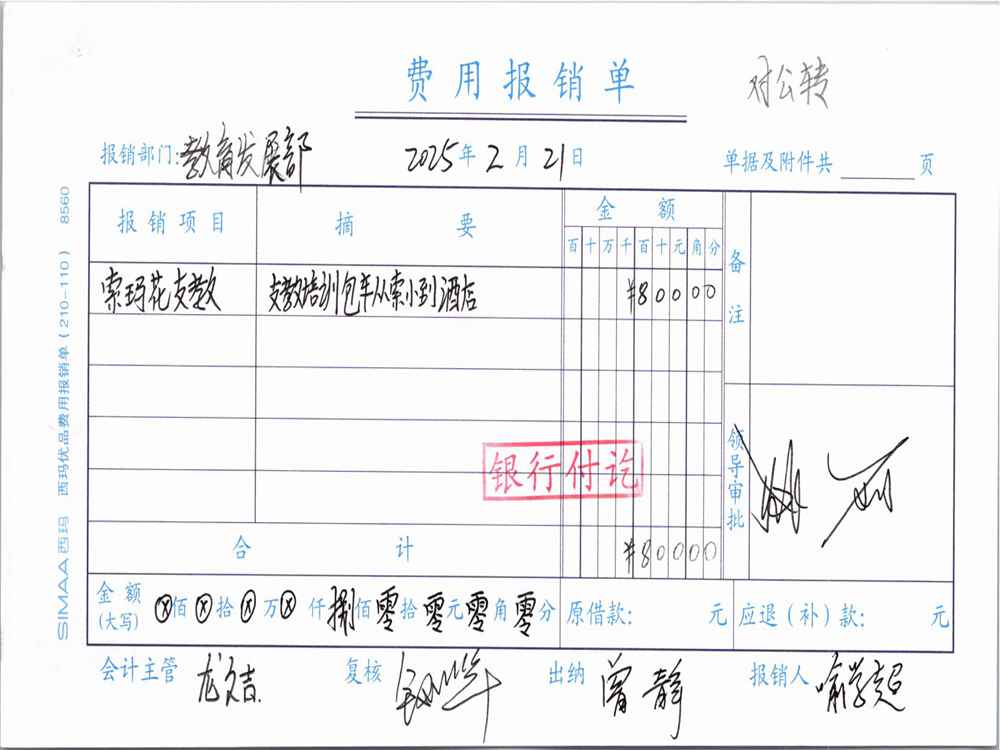 费用报销单
对公转
报销部门:教育发展部 2025年2月21日 单据及附件共 页
报销项目 摘要 金额 备注
百十万千百十元角分
索玛花支教 支教培训包车从索小到酒店 ¥80000
领导审批
银行付讫
合计 ¥80000
金额(大写) ⊗佰⊗拾⊗万⊗仟捌佰零拾零元零角零分 原借款: 元 应退(补)款: 元
会计主管 龙文吉 复核 出纳 曾静 报销人 喻学超
SIMAA西玛 西玛优品费用报销单(210-110) 8560